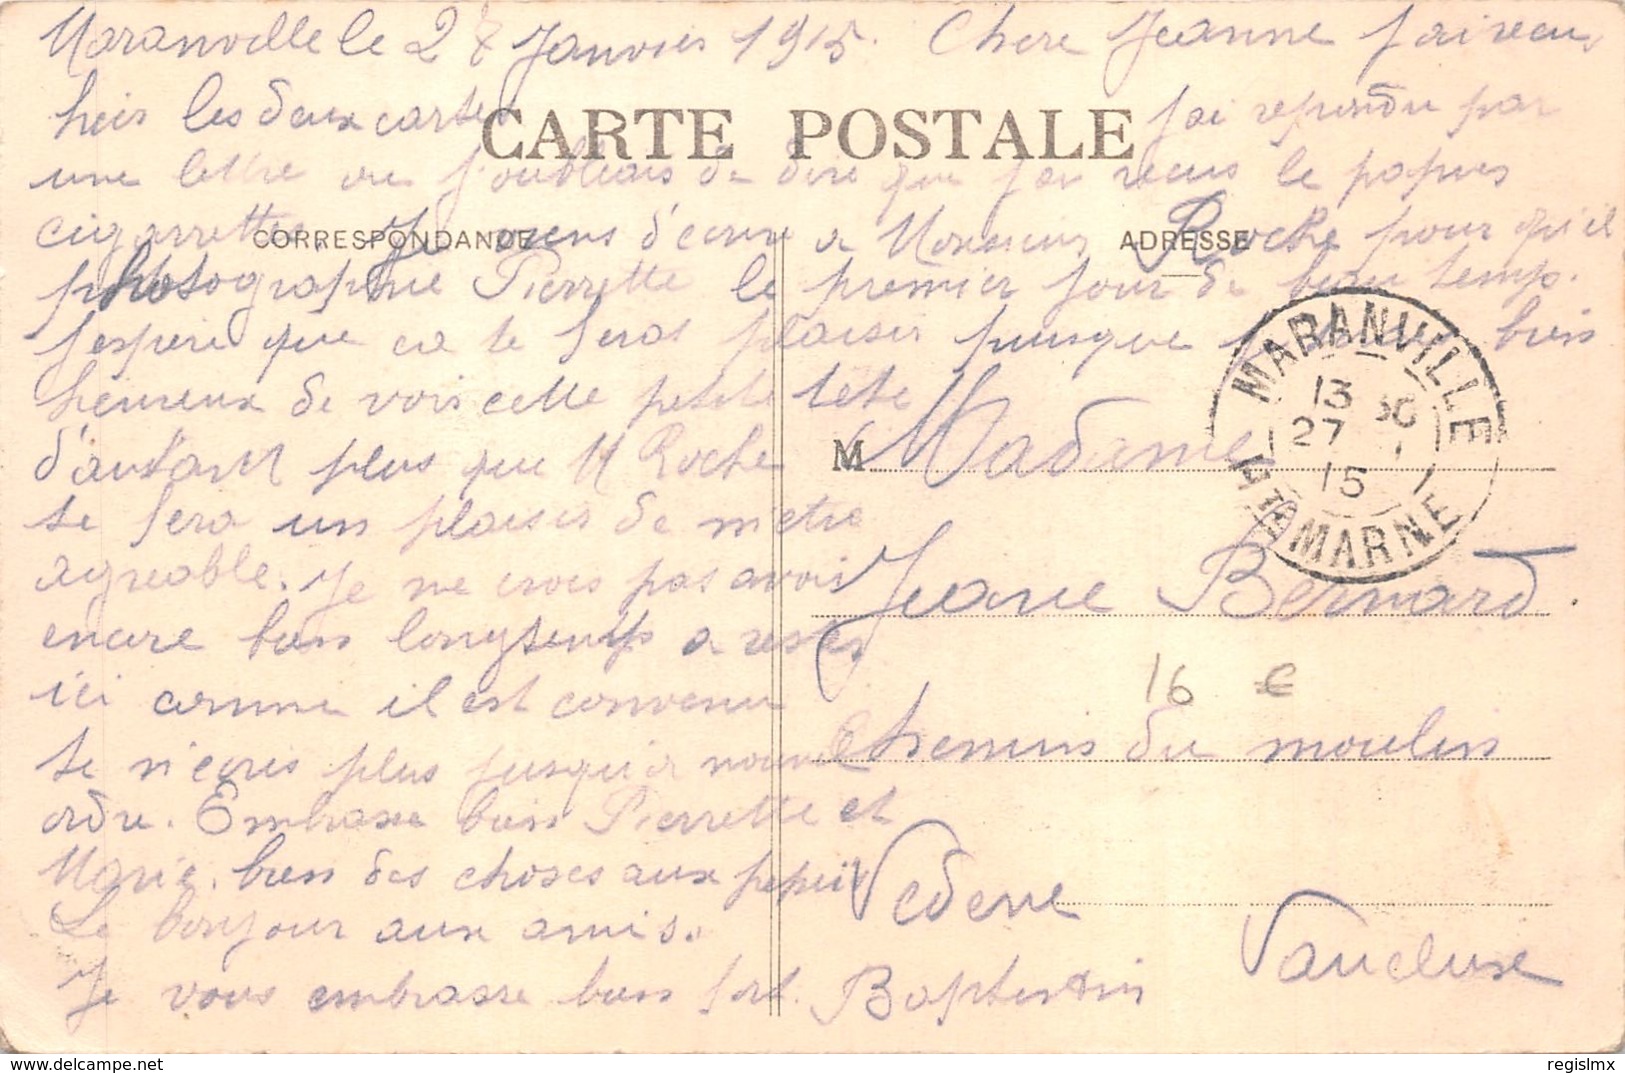 Maranville le 27 Janvier 1915. Chere Jeanne j'ai recu
hier les deux cartes j'ai repondu par
CARTE POSTALE
une lettre ou j'oubliais de dire que j'ai recus le papier
cigarrettes. Je viens d'ecrire a Monsieur Roche pour qu'il
CORRESPONDANCE ADRESSE
photographie Pierrette le premier jour de beau temps.
J'espere que ca te fera plaisir puisque bien
heureux de voir cette petite tete
d'autant plus que M Roche
se fera un plaisir de m'etre
agreable. Je ne crois pas avoir
encore bien longtemps a rester
ici comme il est convenu
ne m'ecris plus jusqu'a nouvel
ordre. Embrasse bien Pierrette et
Marie. bien des choses aux
Le bonjour aux amis.
Je vous embrasse bien fort. Baptistin
M Madame
Jeane Bernard.
Chemin du moulin
Vedene
Vaucluse
16 €
MARANVILLE
13 30
27 1
15
HTE MARNE
delcampe.net
regislmx